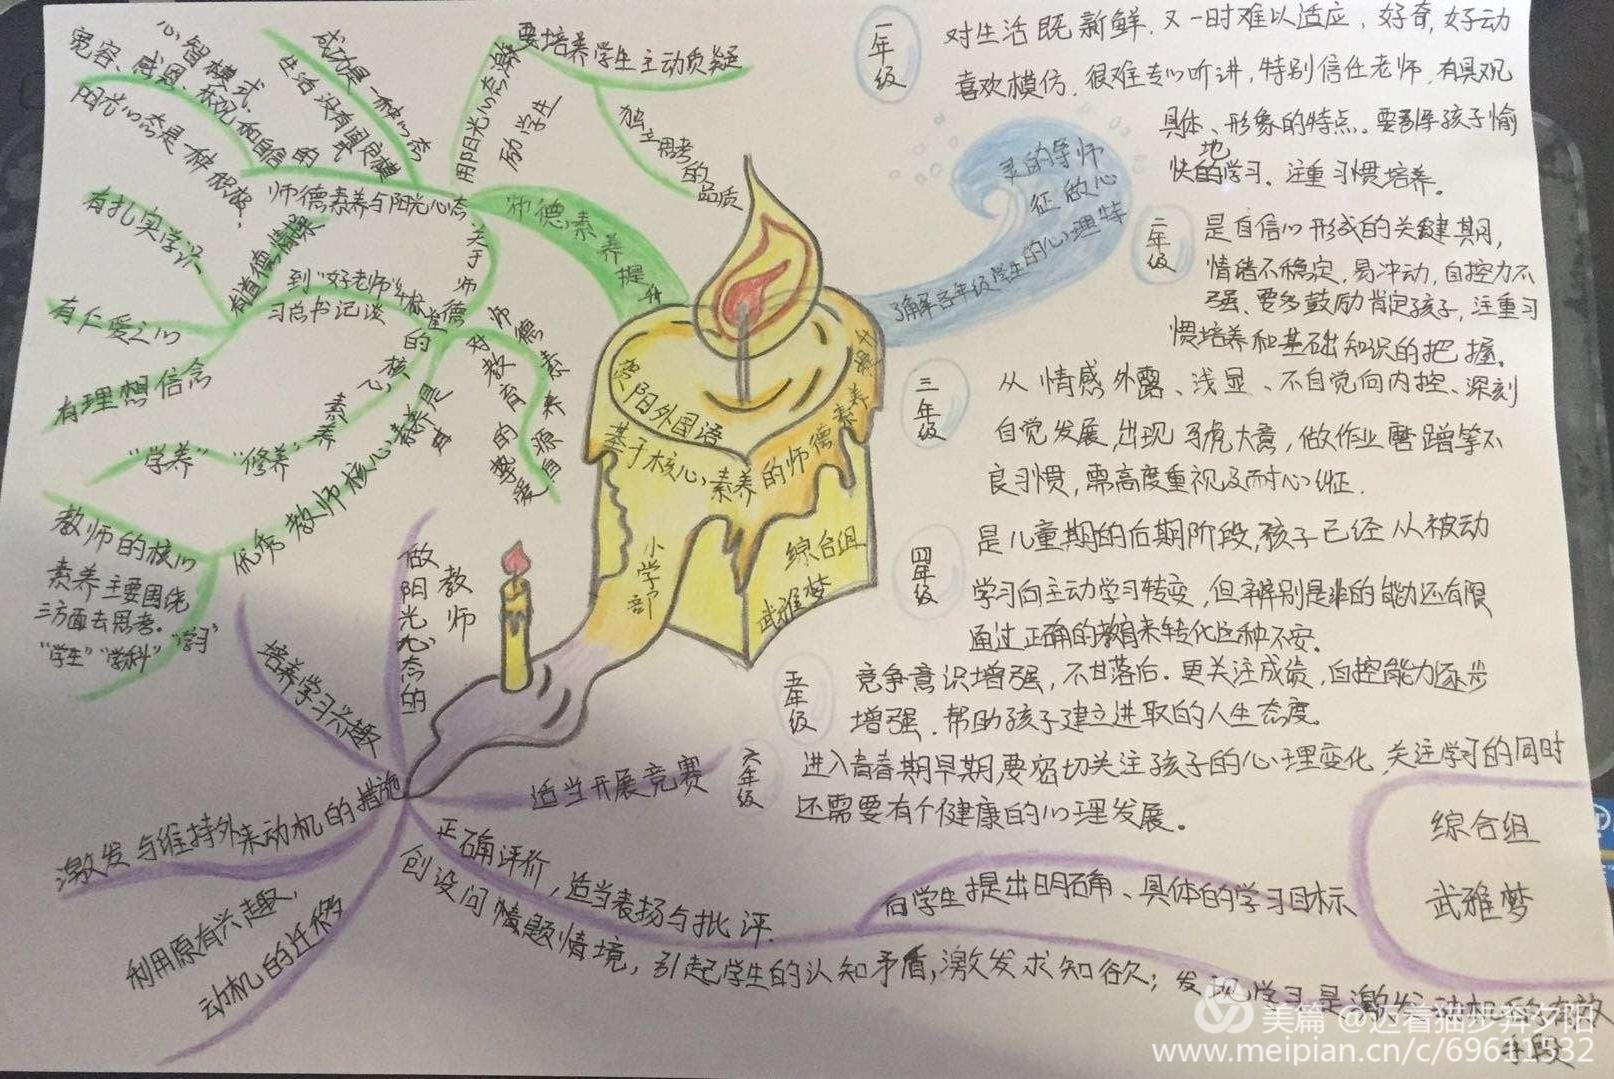 心智模式
宽容、感恩、乐观和自信的
阳光心态是一种积极、
成功是一种心态
生活没有固定模
用阳光心态激
励学生
要培养学生主动质疑
独立思考
的
品质
师德素养与阳光心态
师德素养提升
有道德情操
有扎实学识
有仁爱之心
有理想信念
习总书记谈
到"好老师"
关于师德
对教育事业的爱
师德素养源自
"学养" "修养"
素养
优秀教师核心素养是
教师的核心
素养主要围绕
三方面去思考。
"学生""学科""学习"
阳外国语
基于核心素养的师德素养提升
小学部
综合组
武雅梦
了解各年级学生的心理特
征做心
灵的导师
一年级
对生活既新鲜,又一时难以适应,好奇,好动
喜欢模仿,很难专心听讲,特别信任老师,有具观
具体、形象的特点。要引导孩子愉
快地的学习、注重习惯培养。
二年级
是自信心形成的关键期,
情绪不稳定,易冲动,自控力不
强、要多鼓励肯定孩子,注重习
惯培养和基础知识的把握。
三年级
从情感外露、浅显、不自觉向内控、深刻
自觉发展,出现马虎大意,做作业磨蹭等不
良习惯,需高度重视及耐心纠正.
四年级
是儿童期的后期阶段,孩子已经从被动
学习向主动学习转变,但辨别是非的能力还有限
通过正确的教育来转化这种不安。
五年级
竞争意识增强,不甘落后.更关注成绩,自控能力逐步
增强、帮助孩子建立进取的人生态度。
六年级
进入青春期早期要密切关注孩子的心理变化.关注学习的同时
还需要有个健康的心理发展。
做阳光心态的
教师
培养学习兴趣
激发与维持外来动机的措施
利用原有兴趣,
动机的迁移
适当开展竞赛
正确评价,适当表扬与批评.
创设问情题情境,引起学生的认知矛盾,激发求知欲;发现学习是激发动机的有效
手段
向学生提出明确、具体的学习目标
综合组
武雅梦
美篇 @迈着猫步奔夕阳
www.meipian.cn/c/69611532